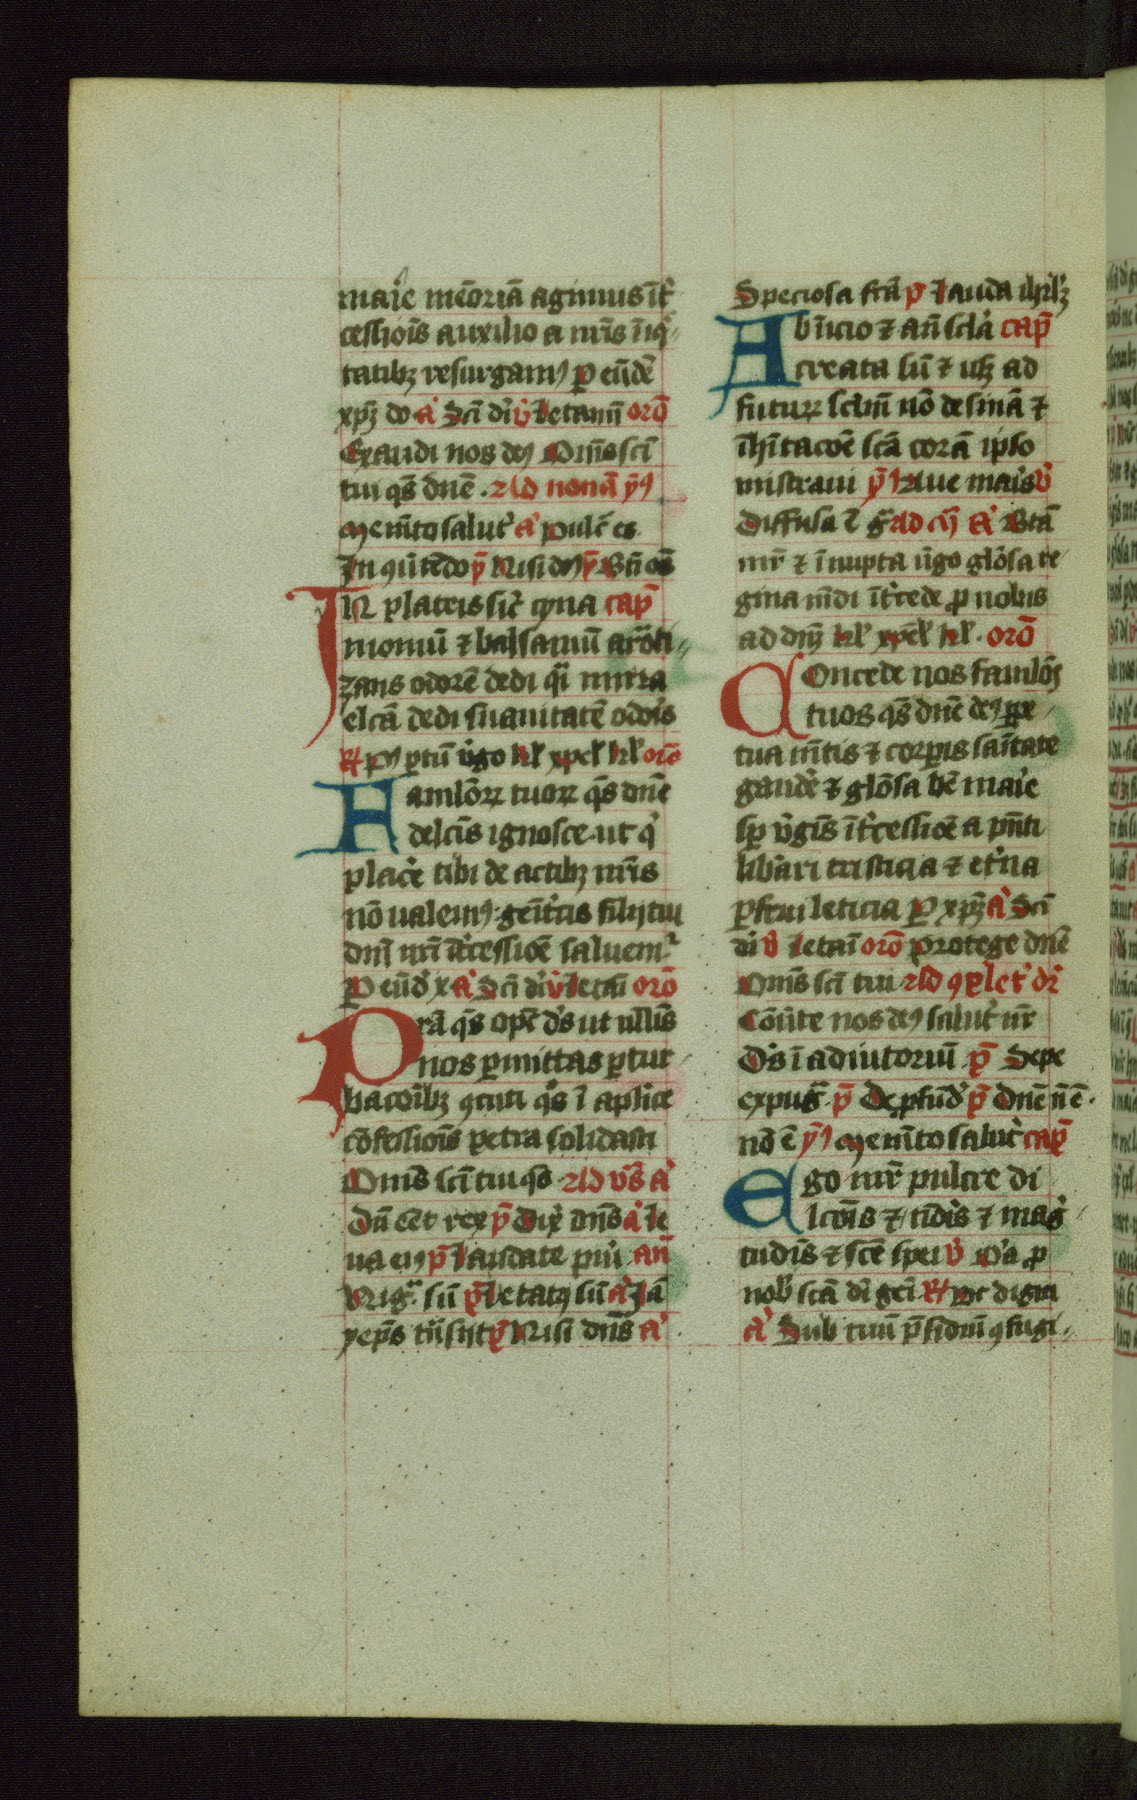 marie memoriā agimus īt͛
cessiōis auxilio a nr̄is īiq͛
tatibȝ resurgamꝰ ꝑ eūdē
xpȝ do a͛ Sc̄i di v͛ letamī orō
Exaudi nos deꝰ Omēs sc̄i
tui qs̄ dn̄e . Ad nonā ymꝰ
Memēto salut͛ a͛ Pulc̄ es
In ꝯūtēdo p̄ Nisi dn̄s p̄ Bt̄i oēs
IN plateis sic͛ cyna cap̄
momū ⁊ balsamū arōti
zans odorē dedi q̄i mirra
elc̄ā dedi suauitatē odor͛is
R Pꝰ ptū v͛go kl̄ xpel̄ kl̄ orō
Famlōrꝝ tuorꝝ qs̄ dn̄e
delc̄is ignosce ut q͛
placē͛ tibi de actibȝ nr̄is
nō ualemꝰ genīt͛cis filij tui
dn̄i nr̄i īt͛cessiōe saluem͛
ꝑ eūd͛ x a͛ Sc̄i di v͛ letam̄ orō
Prā qs̄ opt̄ ds̄ ut nullis
nos ꝑmittas ꝑtur
bacōibȝ ꝯcuti qͦs ī aplice
cōfessiōis petra solidasti
Omēs sc̄i tui qs̄ Ad vs̄ a͛
Dū eēt rex p̄ Dix͛ dn̄s a͛ le
ua eiꝰ p̄ Laudate pueri an̄
Nigͣ sū p̄ letatꝰ sū a͛ Iā
yeps̄ tn̄sijt p̄ Nisi dn̄s a͛
Speciosa fc̄ā p̄ Lauda ihrl̄ȝ
Ab īicio ⁊ an̄ sclā͛ cap̄
creata sū ⁊ usqȝ ad
futurꝝ sclm̄ nō desinā ⁊
īhītacōe sc̄ā corā ipso
mistraui ymꝰ Aue mar͛is v͛
Diffusa ē gͣ Ad m̄ a͛ Btā
mr̄ ⁊ īnupta v͛go glōsa re
gina mūdi īt͛cede ꝓ nobis
ad dn̄m kl̄ xpēl̄ kl̄ . orō
Concede nos famlōs
tuos qs̄ dn̄e deꝰ ꝑpe
tua mētis ⁊ corꝑis sanītate
gaudē͛ ⁊ glōsa bt̄e marie
sꝑ v͛gis īt͛cessiōe a pn̄ti
lib͛ari tristicia ⁊ et͛na
ꝑfrui leticia ꝑ xpȝ a͛ Sc̄i
di v͛ letam̄ orō Protege dn̄e
Omēs sc̄i tui Ad ꝯplet͛ dr̄
Cōūte nos deꝰ salut͛ nr̄
Ds̄ ī adiutoriū p̄ Sepe
expugͣ p̄ De ꝓfūd͛ p̄ Dn̄e n̄ ē
nō ē ymꝰ Memēto salut͛ cap̄
Ego mr̄ pulcre di
lcōis ⁊ tīdis ⁊ mag
tudīs ⁊ sc̄e spei v͛ Ora ꝓ
nob͛ sc̄ā di ge R Ut digni
a͛ Sub tuū p̄sidiū ꝯfugi